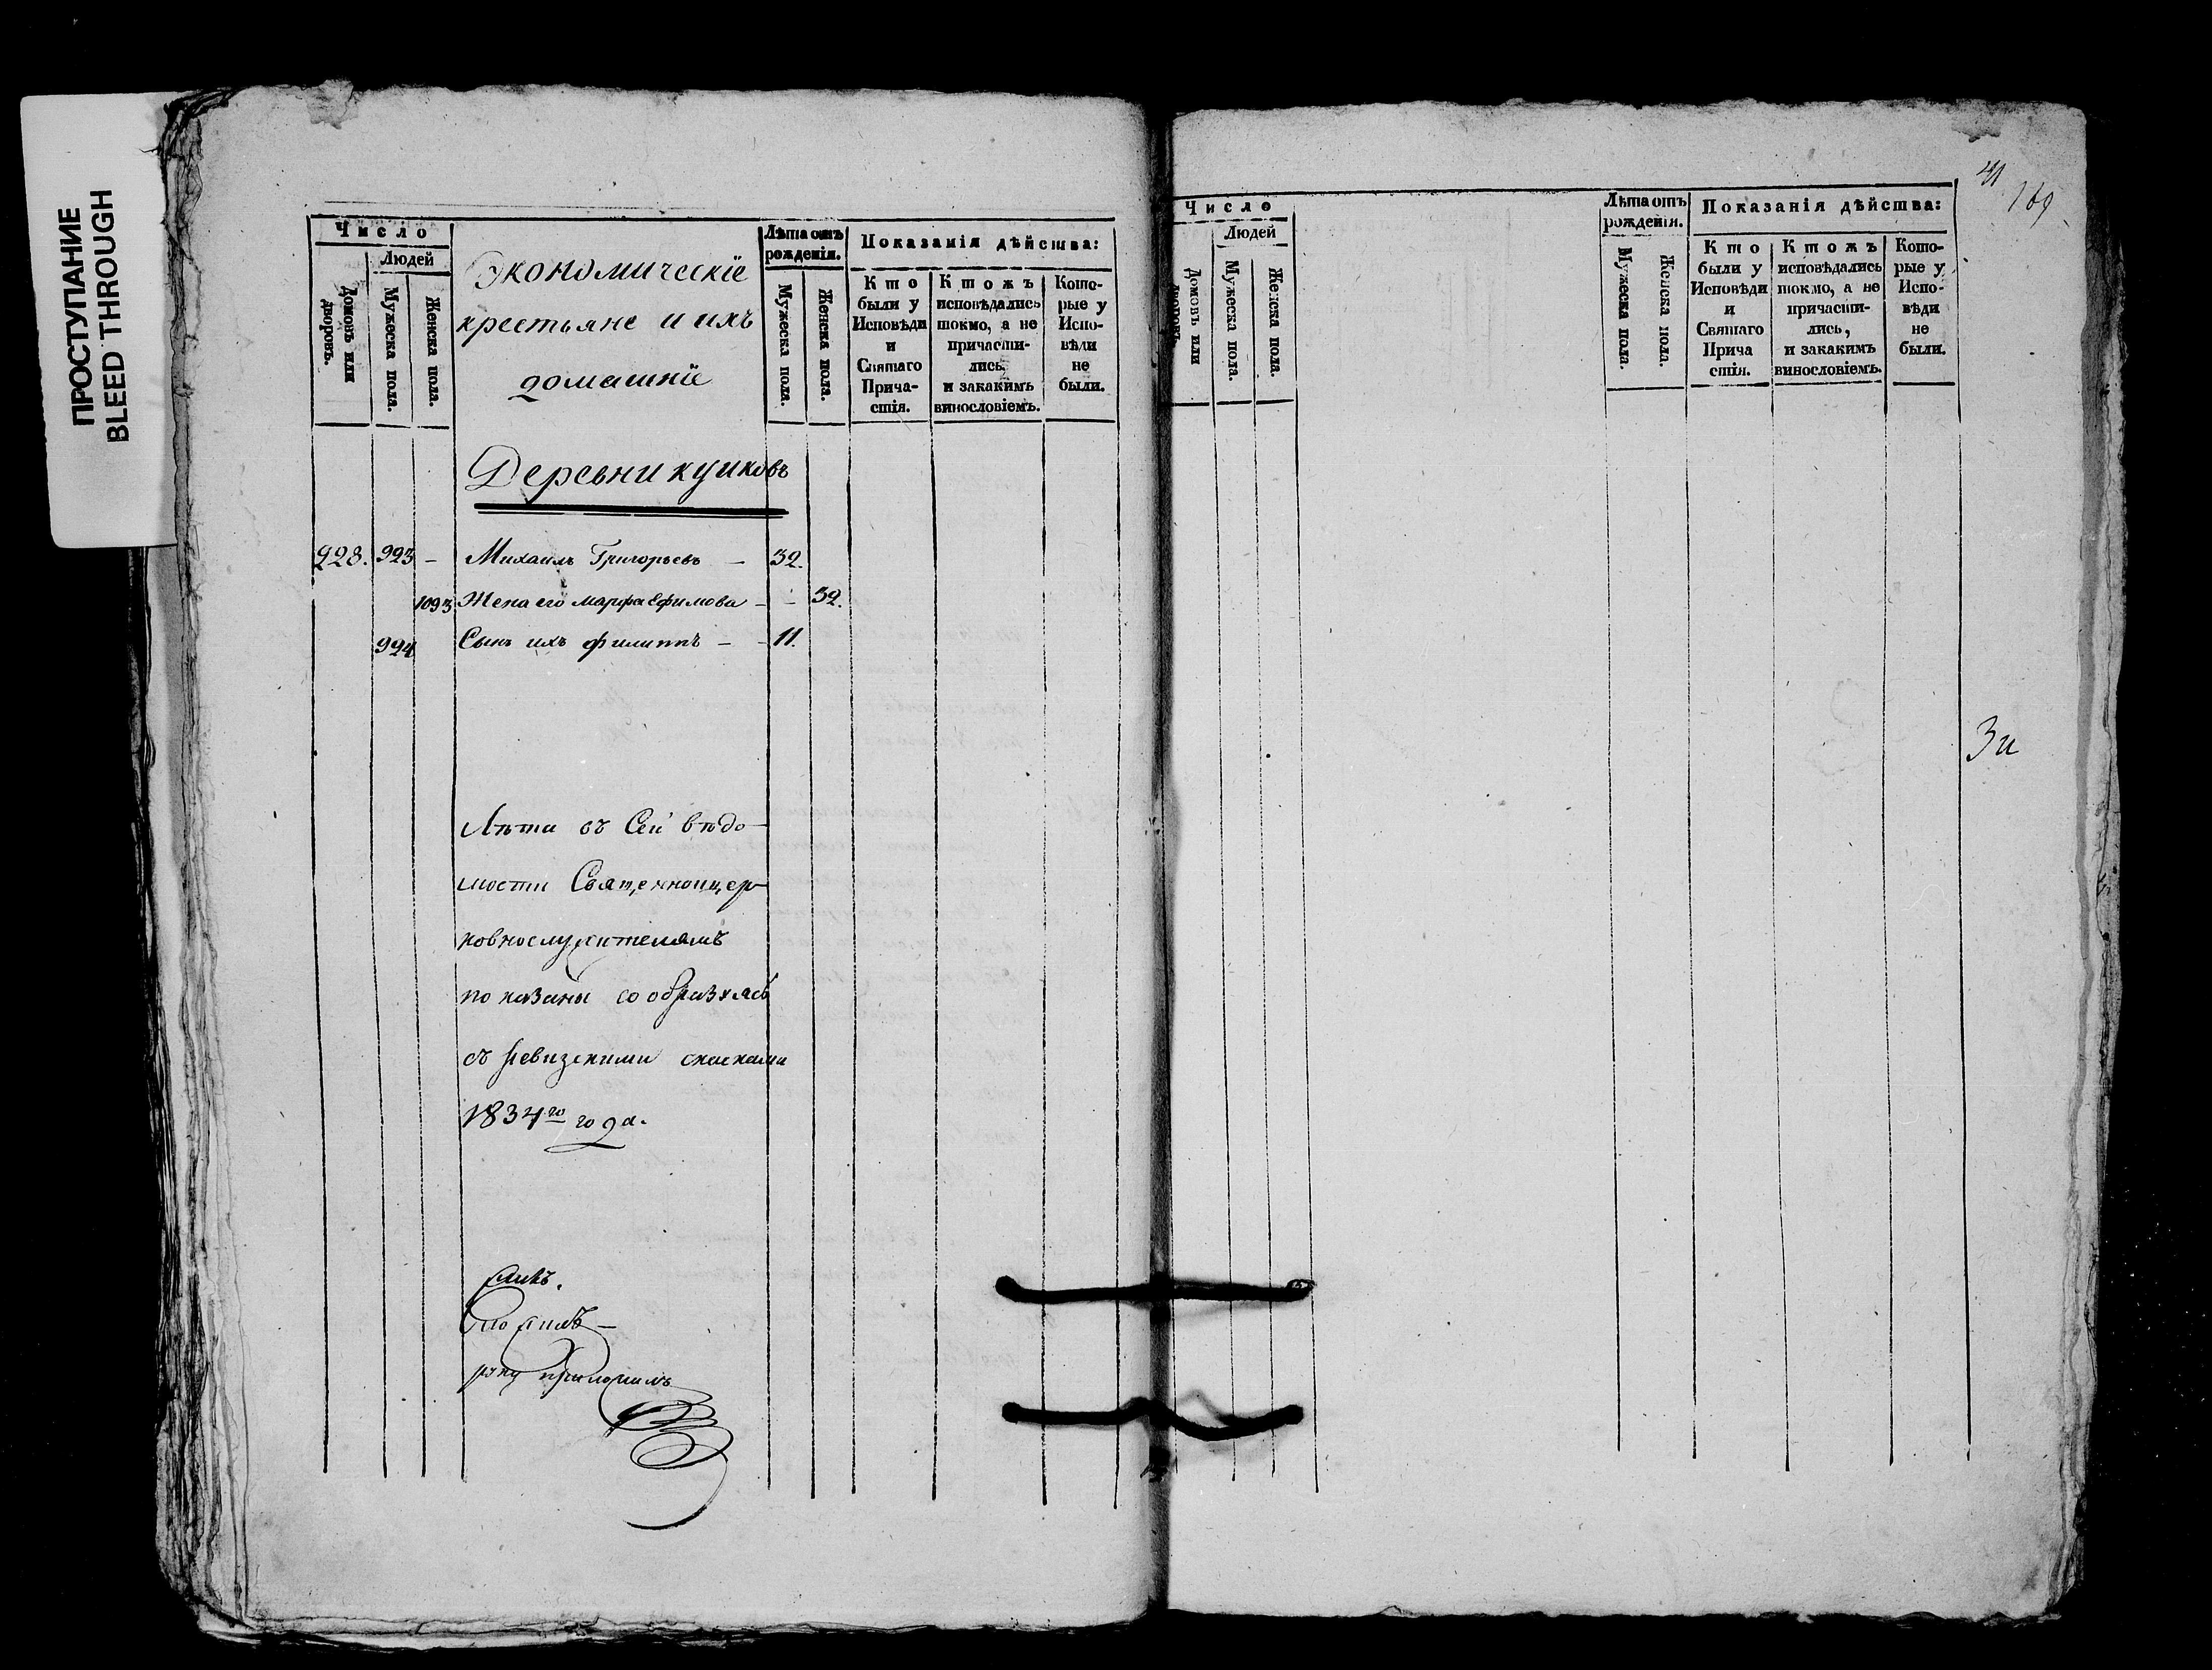 ПРОСТУПАНИЕ
BLEED THROUGH
Число
Людей
Домовъ или дворовъ.
Мужеска пола.
Женска пола.
Экономическіе
крестьяне и ихъ
домашніе
Лѣта отъ рожденія.
Мужеска пола.
Женска пола.
Показанія дѣйства:
Кто были у Исповѣди и Святаго Прича-стія.
Ктожъ исповѣдались токмо, а не причасти-лись, и закакимъ винословіемъ.
Кото-рые у Испо-вѣди не были.
Деревни куиковъ
228. 993 — Михаилъ Григорьевъ — 32.
1093 Жена его марфа Ефимова — — 32.
994 Сынъ ихъ филиппъ — 11.
Лѣта въ Сей вѣдо-
мости Священноцер-
ковнослужителямъ
показаны сообразяясь
съ Ревизскими сказками
1834го года.
руку приложилъ
41
169
Число
Людей
Домовъ или
Мужеска пола.
Женска пола.
Лѣта отъ рожденія.
Мужеска пола.
Женска пола.
Показанія дѣйства:
Кто были у Исповѣди и Святаго Прича стія.
Ктожъ исповѣдались токмо, а не причасти-лись, и закакимъ винословіемъ.
Кото-рые у Испо-вѣди не были.